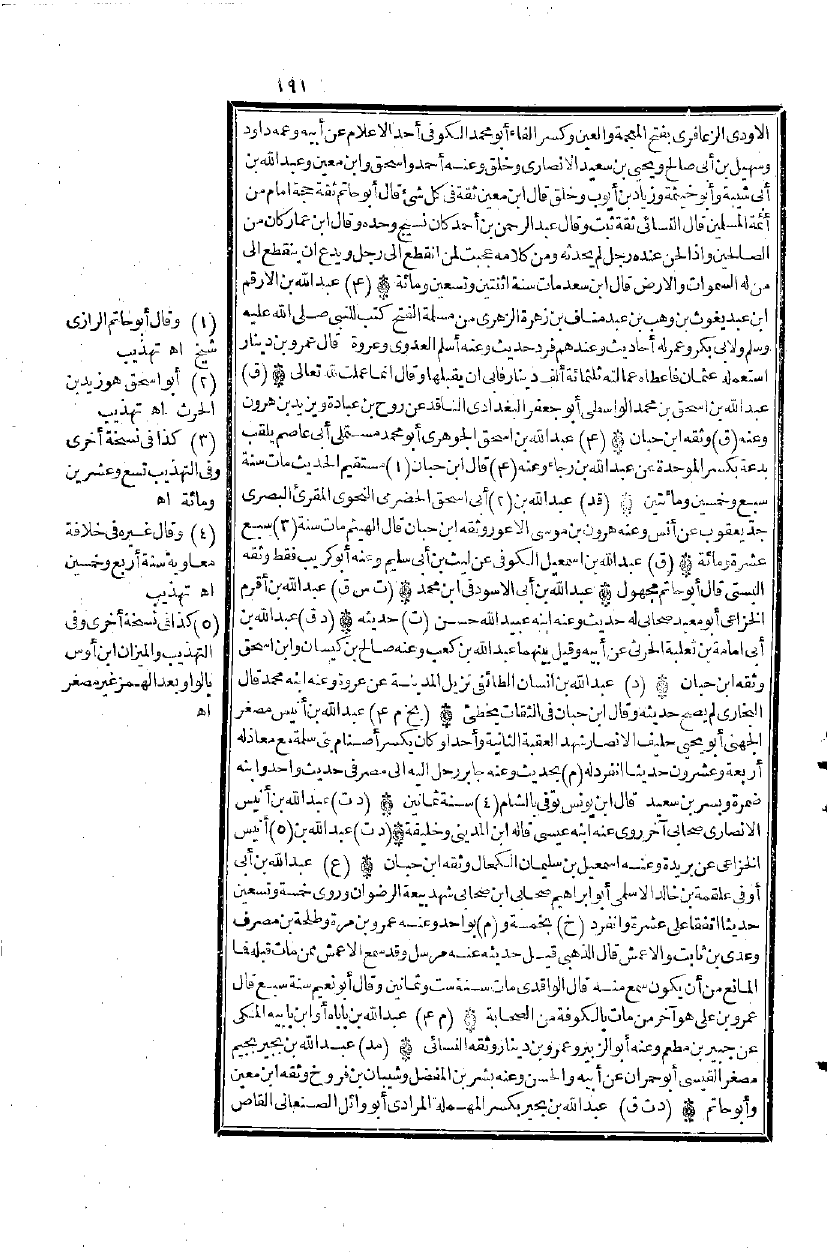 ١٩١
الاودى الزعافرى بفتح المهجمة والعين وكسر الفاء أبو محمد الكوفى أحد الاعلام عن أبيه وعمه داود
وسهيل بن أبى صالح ويحيى بن سعيد الانصارى وخلق وعنه أحمد واسحق وابن معين وعبدالله بن
أبى شيبة وأبو خيثمة وزياد بن أيوب وخلق قال ابن معين ثقة فى كل شئ قال أبو حاتم ثقة حجة امام من
أئمة المسلمين قال النسائى ثقة ثبت وقال عبدالرحمن بن أحمد كان نسيج وحده وقال ابن عمار كان من
الصالحين واذا لحن عنده رجل لم يحدثه ومن كلامه عجبت لمن انقطع الى رجل ويدع ان ينقطع الى
من له السموات والارض قال ابن سعد مات سنة اثنتين وتسعين ومائة (٤م) عبدالله بن الارقم
ابن عبد يغوث بن وهب بن عبد مناف بن زهرة الزهرى من مسلمة الفتح كتب للنبى صلى الله عليه
وسلم ولابى بكر وعمر له أحاديث وعندهم فرد حديث وعنه أسلم العدوى وعروة قال عمرو بن دينار
استعمله عثمان فاعطاه عمالته ثلثمائة ألف دينار فابى ان يقبلها وقال انما عملت لله تعالى (ق)
عبدالله بن اسحق بن محمد الواسطى أبو جعفر البغدادى الناقد عن روح بن عبادة ويزيد بن هرون
وعنه (ق) وثقه ابن حبان (٤) عبدالله بن اسحق الجوهرى أبو محمد مستملى أبى عاصم يلقب
بدعة بكسر الموحدة عن عبدالله بن رجاء وعنه (٤) قال ابن حبان (١) مستقيم الحديث مات سنة
سبع وخمسين ومائتين (قد) عبدالله بن (٢) أبى اسحق الحضرمى النحوى المقرئ البصرى
جد يعقوب عن أنس وعنه هرون بن موسى الاعور وثقه ابن حبان قال الهيثم مات سنة (٣) سبع
عشرة ومائة (ق) عبدالله بن اسمعيل الكوفى عن ليث بن أبى سليم وعنه أبو كريب فقط وثقه
البستى قال أبو حاتم مجهول عبدالله بن أبى الاسود فى ابن محمد (ت س ق) عبدالله بن أقرم
الخزاعى أبو معبد صحابى له حديث وعنه ابنه عبيدالله حسن (ت) حديثه (د ق) عبدالله بن
أبى امامة بن ثعلبة الحرثى عن أبيه وقيل بينهما عبدالله بن كعب وعنه صالح بن كيسان وابن اسحق
وثقه ابن حبان (د) عبدالله بن انسان الطائفى نزيل المدينة عن عروة وعنه ابنه محمد قال
البخارى لم يصح حديثه وقال ابن حبان فى الثقات يخطئ (بخ م ٤) عبدالله بن أنيس مصغر
الجهنى أبو يحيى حليف الانصار شهد العقبة الثانية وأحدا وكان يكسر أصنام بنى سلمة مع معاذ له
أربعة وعشرون حديثا انفرد له (م) بحديث وعنه جابر رحل اليه الى مصر فى حديث واحد وابنه
ضمرة وبسر بن سعيد قال ابن يونس توفى بالشام (٤) سنة ثمانين (د ت) عبدالله بن أنيس
الانصارى صحابى آخر روى عنه ابنه عيسى قاله ابن المدينى وخليفة (د ت) عبدالله بن (٥) أنيس
الخزاعى عن بريدة وعنه اسمعيل بن سليمان الكحال وثقه ابن حبان (ع) عبدالله بن أبى
أوفى علقمة بن خالد الاسلمى أبو ابراهيم صحابى ابن صحابى شهد بيعة الرضوان وروى خمسة وتسعين
حديثا اتفقا على عشرة وانفرد (خ) بخمسة و (م) بواحد وعنه عمرو بن مرة وطلحة بن مصرف
وعدى بن ثابت والاعمش قال الذهبى قيل حديثه عنه مرسل وقد سمع الاعمش ممن مات قبله فما
المانع من أن يكون سمع منه قال الواقدى مات سنة ست وثمانين وقال أبو نعيم سنة سبع قال
عمرو بن على هو آخر من مات بالكوفة من الصحابة (م ٤) عبدالله بن باباه أو ابن بابيه المكى
عن جبير بن مطعم وعنه أبو الزبير وعمرو بن دينار وثقه النسائى (مد) عبدالله بن بجير بجيم
مصغر القيسى أبو حمران عن أبيه والحسن وعنه بشر بن المفضل وشيبان بن فروخ وثقه ابن معين
وأبو حاتم (د ت ق) عبدالله بن بحير بكسر المهملة المرادى أبو وائل الصنعانى القاص
(١) وقال أبو حاتم الرازى
شيخ اه تهذيب
(٢) أبو اسحق هو زيد بن
الحرث اه تهذيب
(٣) كذا فى نسخة أخرى
وفى التهذيب تسع وعشرين
ومائة اه
(٤) وقال غيره فى خلافة
معاوية سنة أربع وخمسين
اه تهذيب
(٥) كذا فى نسخة أخرى وفى
التهذيب والميزان ابن أوس
بالواو بعد الهمز غير مصغر
اه